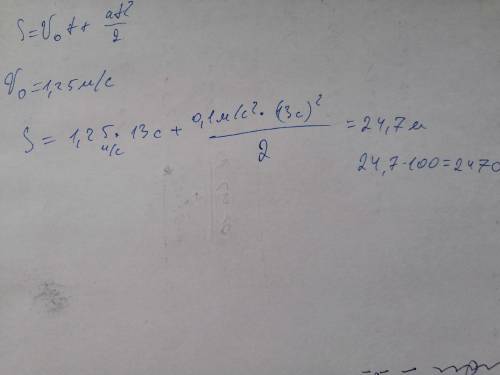 S = V₀t + at²/2
V₀ = 1,25 м/с
S = 1,25 м/с · 13 с + 0,1 м/с² · (13 с)²/2 = 24,7 м
24,7 · 100 = 2470